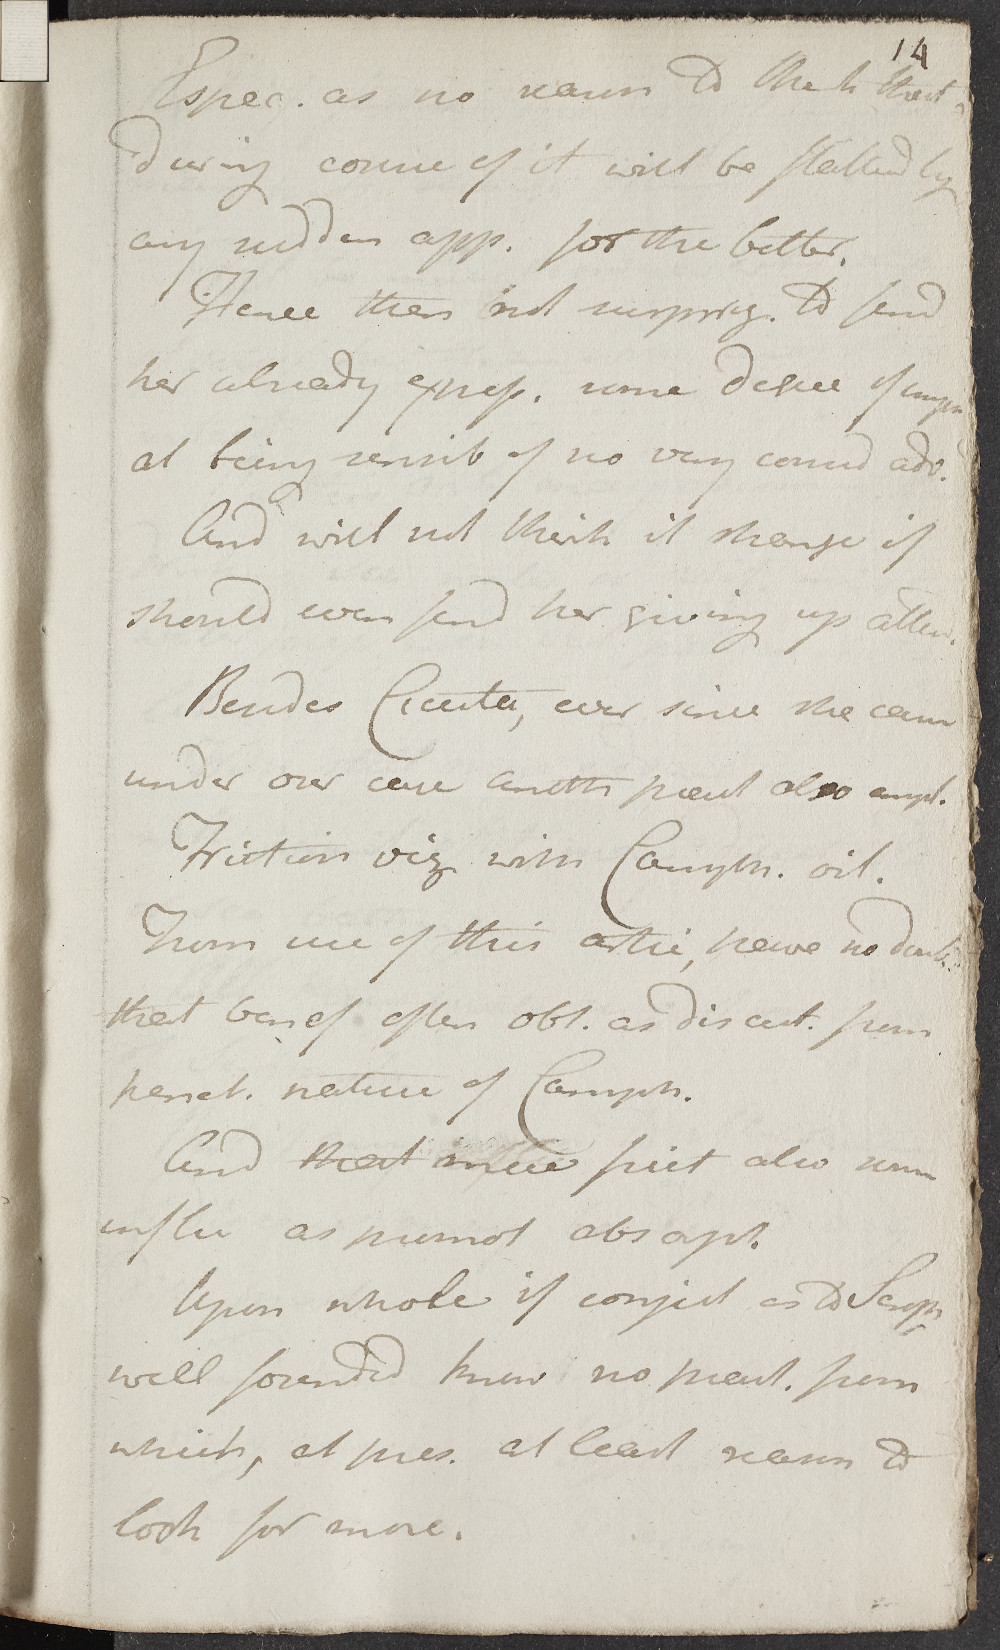 14
Espec. as no reason to think that
during course of it will be flattered by
any sudden app. for the better.
Hence then not surprisg. to find
her already expres. some degree of
at being sensib of no very consid adv.
And will not think it strange if
should even find her giving up atten.
Besides Cicuta, ever since she came
under our care another pract also empl.
Friction viz with Camph. oil.
From use of this artic, have no doubt
that benef often obt. as discut. from
penet. nature of Camph.
And that mere frict also some
influ as promot absopt.
Upon whole if conject as to Scroph
well founded know no pract. from
which, at pres. at least reason to
look for more.